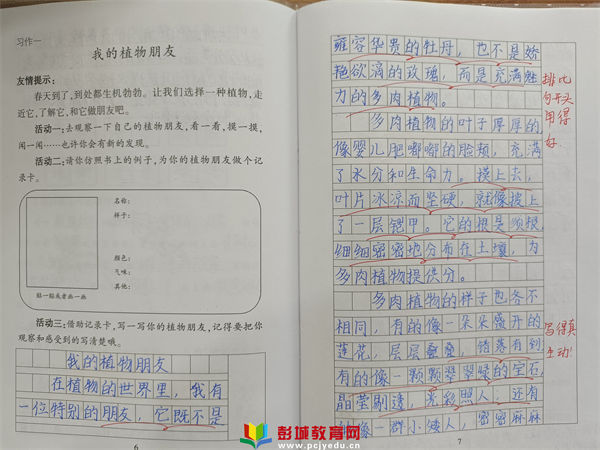 习作一
我的植物朋友
友情提示：
春天到了,到处都生机勃勃。让我们选择一种植物,走
近它,了解它,和它做朋友吧。
活动一:去观察一下自己的植物朋友,看一看,摸一摸,
闻一闻……也许你会有新的发现。
活动二:请你仿照书上的例子,为你的植物朋友做个记
录卡。
名称:
样子:
颜色:
气味:
其他:
贴一贴或者画一画
活动三:借助记录卡,写一写你的植物朋友,记得要把你
观察和感受到的写清楚哦。
我的植物朋友
在植物的世界里，我有
一位特别的朋友，它既不是
6
雍容华贵的牡丹，也不是娇
艳欲滴的玫瑰，而是充满魅
力的多肉植物。
多肉植物的叶子厚厚的，
像婴儿肥嘟嘟的脸颊，充满
了水分和生命力。摸上去，
叶片冰凉而坚硬，就像披上
了一层铠甲。它的根是须根，
细细密密地分布在土壤，为
多肉植物提供分。
多肉植物的样子也各不
相同，有的像一朵朵盛开的
莲花，层层叠叠，错落有致
有的像一颗颗翠翠绿的宝石，
晶莹剔透，光彩照人，还有
像一群小矮人，密密麻麻
7
排比
句开头
用得
好.
写得真
生动!
彭城教育网
www.pcjyedu.cn